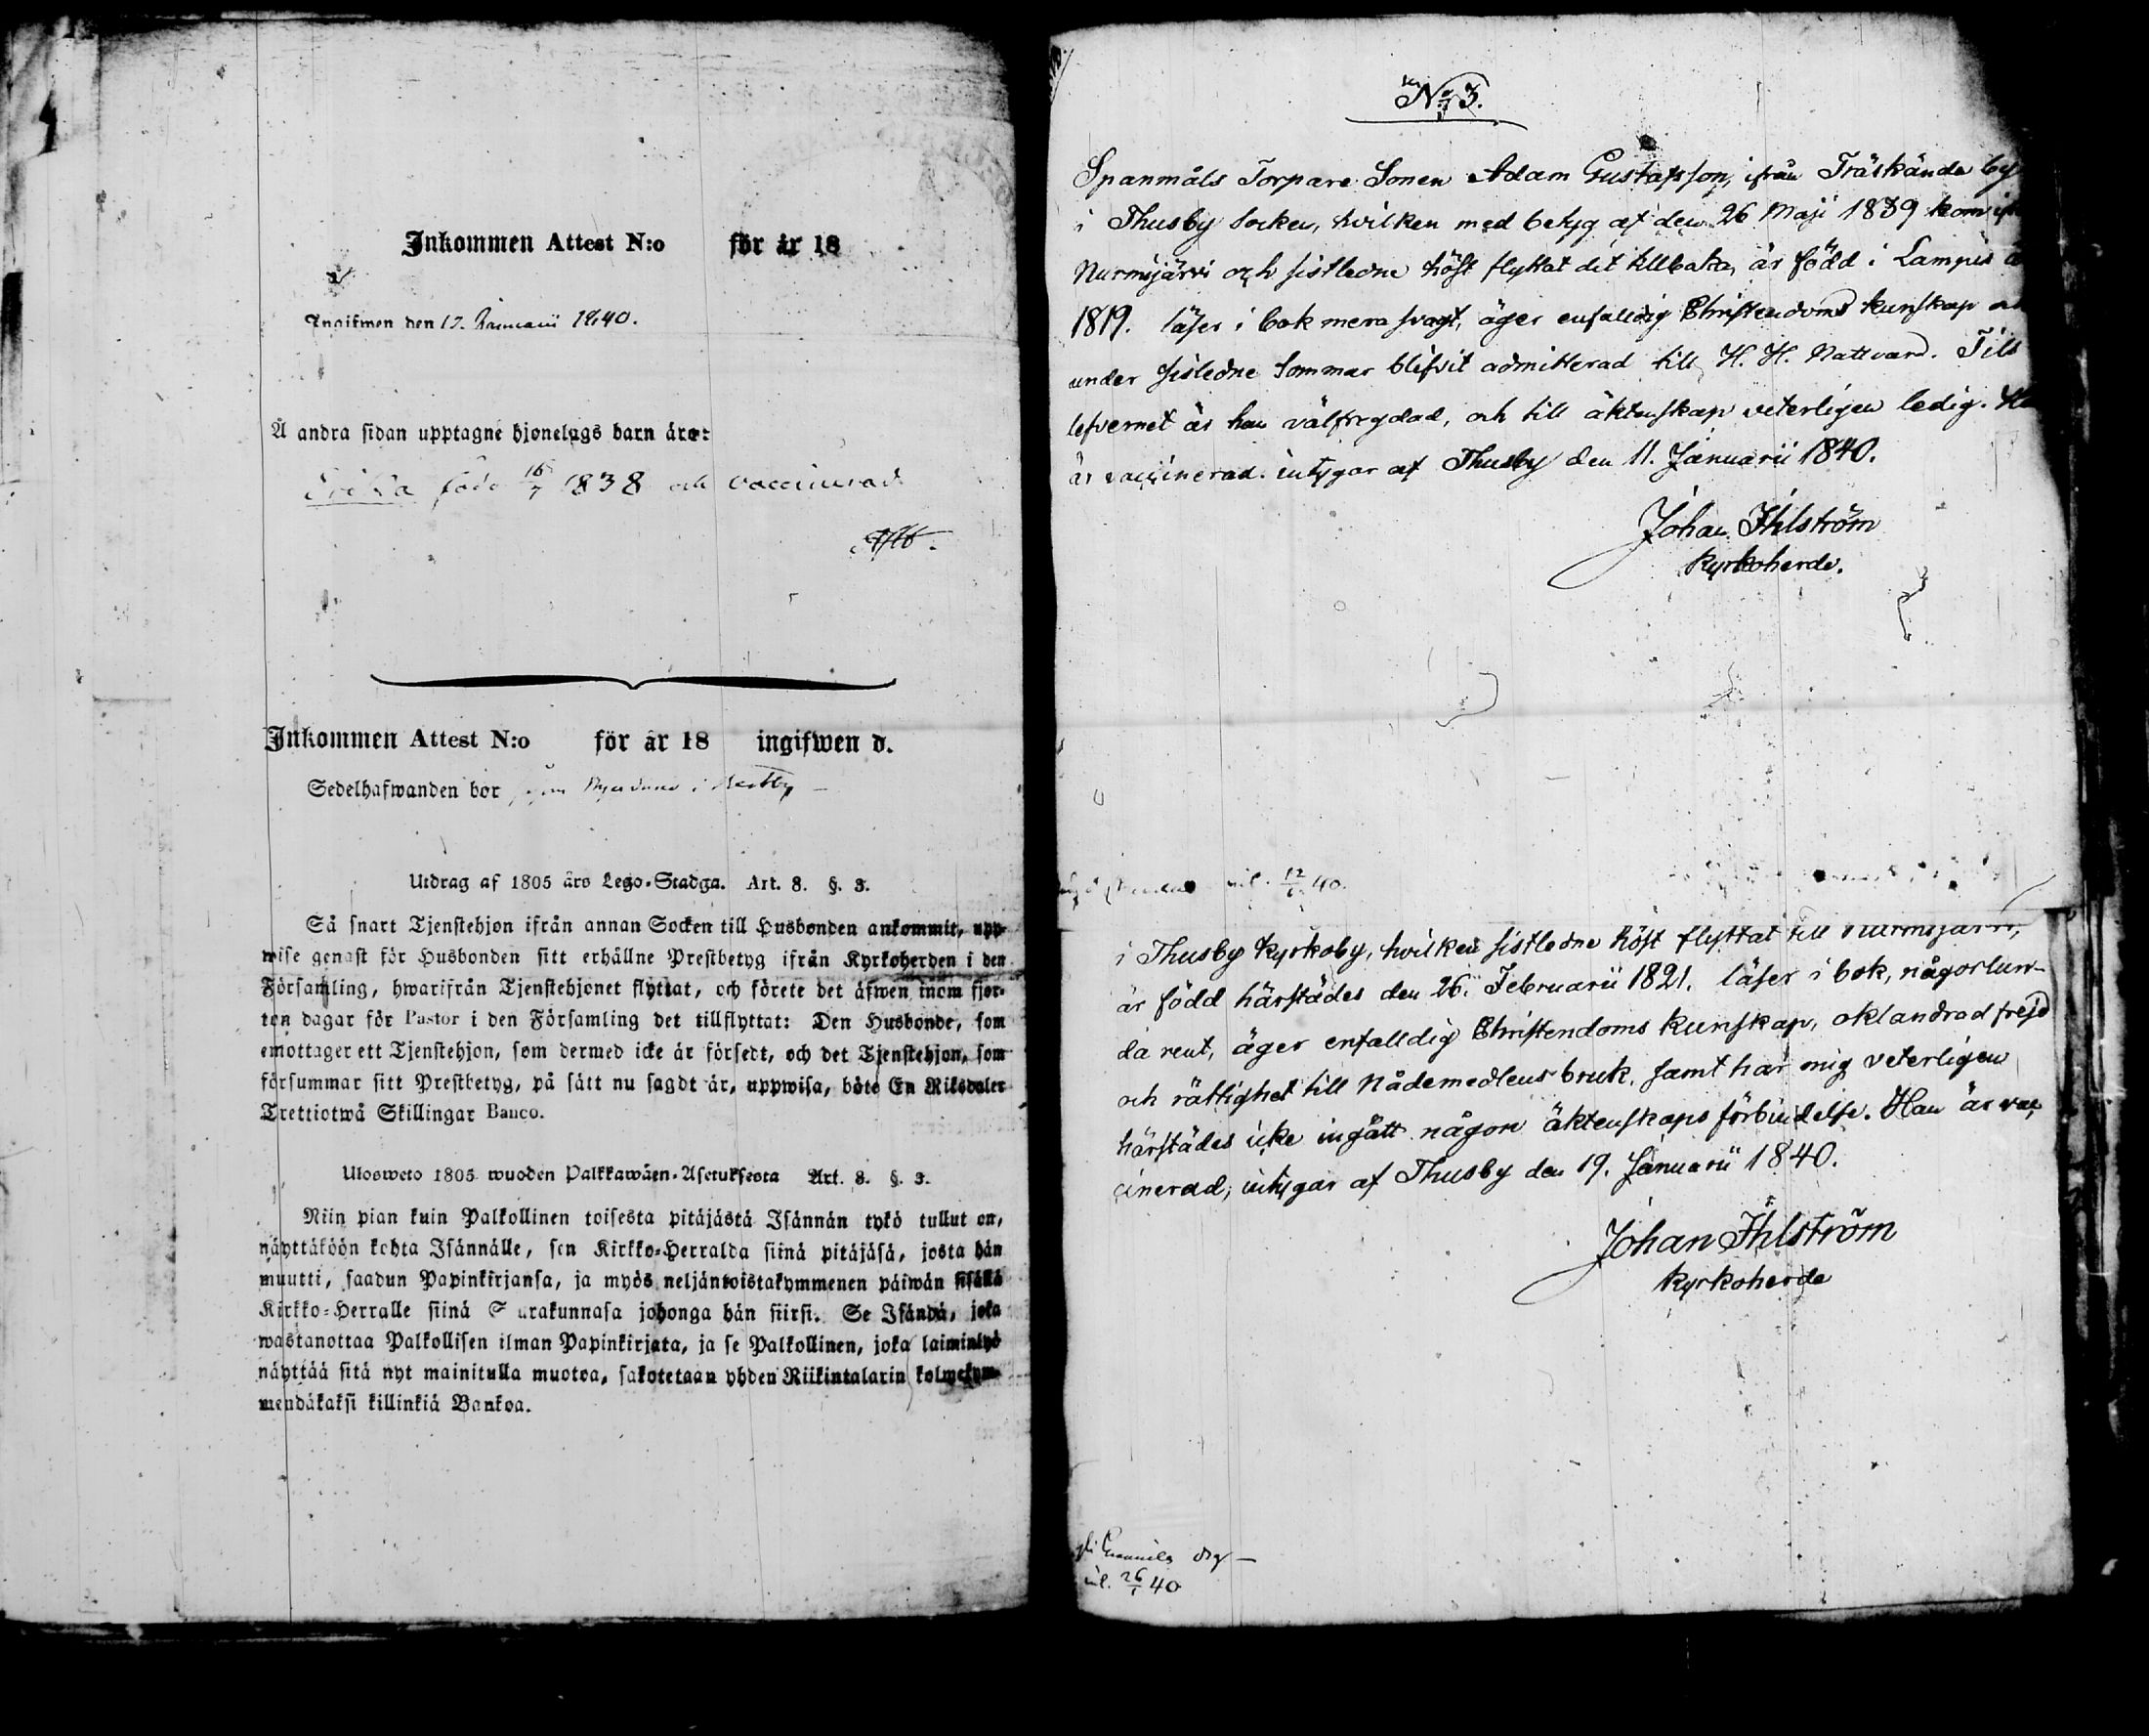 Inkommen Attest N:o för år 18
Ingifwen den 17. Januarii 1840.
Å andra sidan upptagne hjonelags barn äro:
Erika född 16/7 1838 och vaccinerad
Inkommen Attest N:o för år 18 ingifwen d.
Sedelhafwanden bor i
Utdrag af 1805 års Lego-Stadga. Art. 8. §. 3.
Så snart Tjenstehjon ifrån annan Socken till Husbonden ankommit, upp-
wise genast för Husbonden sitt erhållne Prestbetyg ifrån Kyrkoherden i den
Församling, hwarifrån Tjenstehjonet flyttat, och förete det äfwen inom fjor-
ton dagar för Pastor i den Församling det tillflyttat: Den Husbonde, som
emottager ett Tjenstehjon, som dermed icke är försedt, och det Tjenstehjon, som
försummar sitt Prestbetyg, på sätt nu sagdt är, uppwisa, böte En Riksdaler
Trettiotwå Skillingar Banco.
Ulosweto 1805 wuoden Palkkawäen-Asetuksesta Art. 8. §. 3.
Niin pian kuin Palkollinen toisesta pitäjästä Isännän tykö tullut on,
näyttäköön kohta Isännälle, sen Kirkko-Herralda siinä pitäjäsä, josta hän
muutti, saadun Papinkirjansa, ja myös neljäntoistakymmenen päiwän sisällä
Kirkko-Herralle siinä S urakunnasa johonga hän siirsi. Se Isändä, joka
wastanottaa Palkollisen ilman Papinkirjata, ja se Palkollinen, joka laiminlyö
näyttää sitä nyt mainitulla muotoa, sakotetaan yhden Riikintalarin kolmekym-
mendäkaksi killinkiä Bankoa.
No 3.
Spanmåls Torpare Sonen Adam Gustafsson, ifrån Träskända by
i Thusby Socken, hvilken med betyg af den 26 Maji 1839 kom
Nurmijärvi och sistledne höst flyttat dit tillbaka, är född i Lampis
1819. läser i bok mera svagt, äger enfalldig Christendoms kunskap
under sisledne Sommar blifvit admitterad till H. H. Nattvard. Till
lefvernet är han välfregdad, och till äktenskap veterligen ledig.
är vaccinerad. intygar af Thusby den 11. Januarii 1840.
Johan Ihlström
Kyrkoherde.
12/1 40.
i Thusby Kyrkoby, hvilken sistledne höst flyttat till Nurmijärvi,
är född härstädes den 26. Februarii 1821. läser i bok, någorlun-
da rent, äger enfalldig Christendoms Kunskap, oklandrad frejd
och rättighet till Nådemedlens bruk, samt har mig veterligen
härstädes icke ingått någon äktenskaps förbindelse. Han är vac-
cinerad, intygar af Thusby den 19. Januarii 1840.
Johan Ihlström
Kyrkoherde
26/1 40